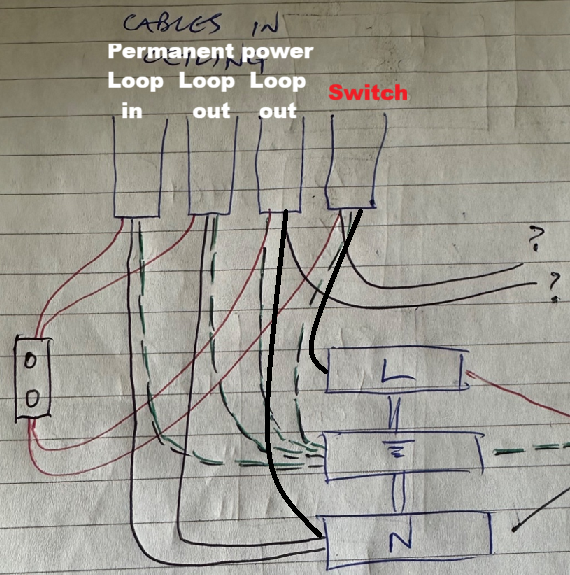 CABLES IN
CEILING
Permanent power
Loop Loop Loop
in out out
Switch
?
?
L
N